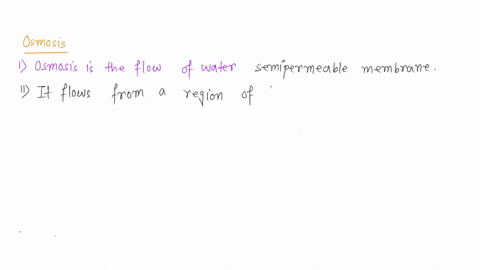 Osmosis
I) Osmosis is the flow of water semipermeable membrane.
II) It flows from a region of